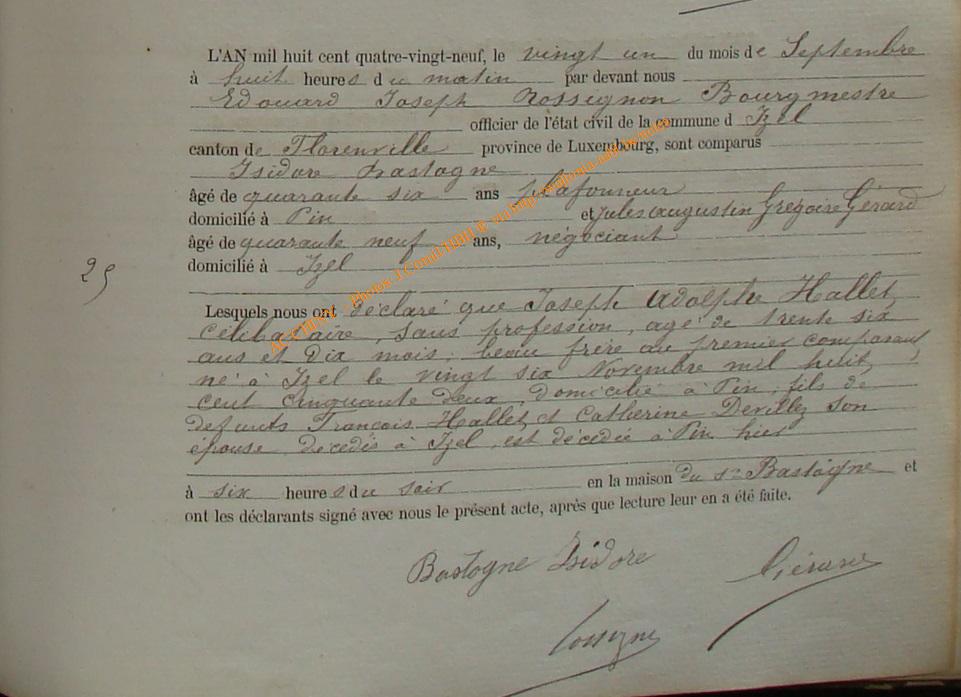 L'AN mil huit cent quatre-vingt-neuf, le vingt un du mois de Septembre
à huit heures du matin par devant nous
Edouard Joseph Rossignon Bourgmestre
officier de l'état civil de la commune d Izel
canton de Florenville province de Luxembourg, sont comparus
Isidore Bastogne
âgé de quarante six ans plafonneur
domicilié à Pin et Jules Augustin Grégoire Gérard
âgé de quarante neuf ans, négociant
domicilié à Izel
25
Lesquels nous ont déclaré que Joseph Adolphe Hallet,
célibataire, sans profession, agé de trente six
ans et dix mois, beau frère au premier comparant,
né à Izel le vingt six Novembre mil huit
cent cinquante deux, domicilié à Pin, fils de
defunts François Hallet et Catherine Devillez son
épouse, décédés à Izel, est décédé à Pin hier
à six heures du soir en la maison du sr Bastogne et
ont les déclarants signé avec nous le présent acte, après que lecture leur en a été faite.
Bastogne Isidore Gérard